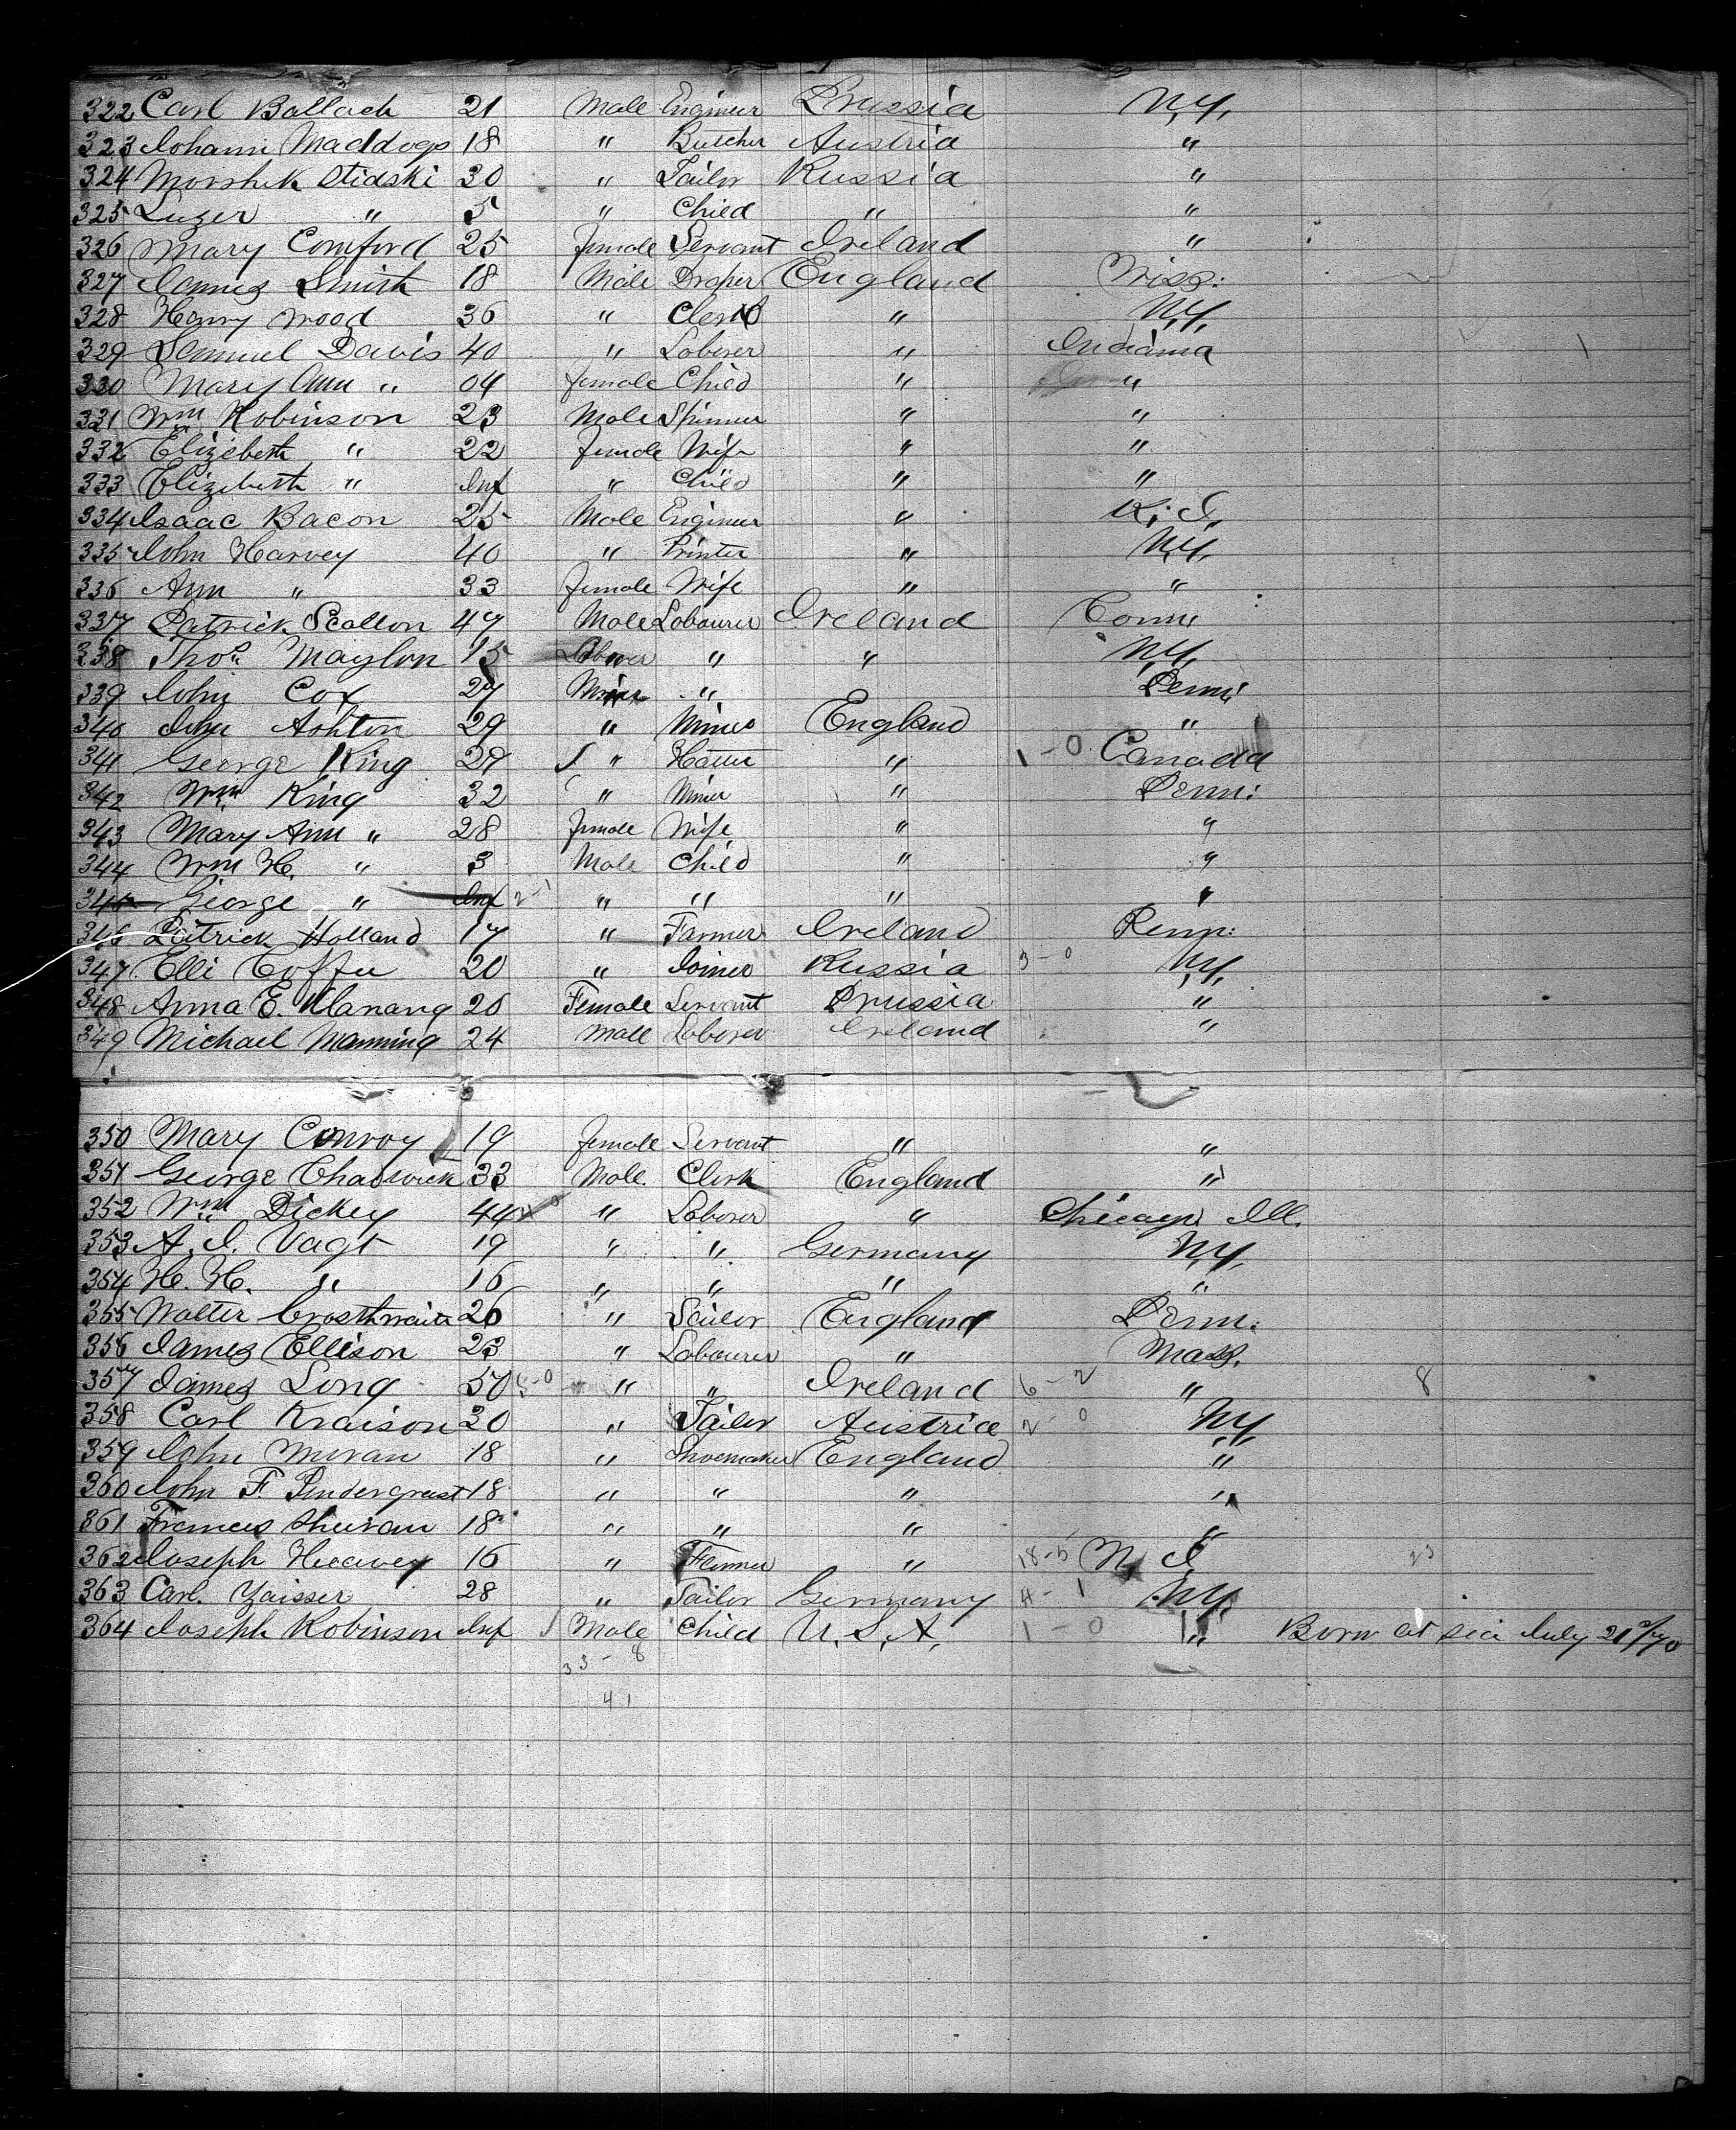 322 Carl Ballach 21 Male Engineer Prussia N.Y.
323 Johann Maddogs 18 " Butcher Austria "
324 Morshik Stidski 30 " Tailor Russia "
325 Luzer " 5 " Child " "
326 Mary Comford 25 female Servant Ireland "
327 James Smith 18 Male Draper England
328 Henry Wood 36 " Clerk " N.Y.
329 Samuel Davis 40 " Laborer " Indiana
330 Mary Ann " 04 female Child " "
331 Wm Robinson 23 Male Spinner " "
332 Elizebeth " 22 female Wife " "
333 Elizibeth " Inf " Child " "
334 Isaac Bacon 25 Male Engineer " R. I.
335 John Harvey 40 " Printer " N.Y.
336 Ann " 33 female Wife " "
337 Patrick Scallon 47 Male Labourer Ireland Conn.
338 Thos. Maylon 15 Laborer " " N.Y.
339 John Cox 27 Miner " Penn:
340 John Ashton 29 " Miner England "
341 George King 27 " Hatter " 1-0 Canada
342 Wm King 32 " Miner " Penn:
343 Mary Ann " 28 female Wife " "
344 Wm H. " 3 Male Child " "
345 George " Inf 2-1 " " " "
346 Patrick Holland 17 " Farmer Ireland Penn:
347 Elli Toffer 20 " Joiner Russia 3-0 N.Y.
348 Anna E. Manang 20 Female Servant Prussia "
349 Michael Manning 24 Male Laborer Ireland "
350 Mary Conroy 19 female Servant " "
351 George Chadwick 33 Male Clerk England "
352 Wm Dickey 44 " Laborer " Chicago Ill.
353 A. J. Vagt 19 " " Germany N.Y.
354 H. H. " 16 " " " "
355 Walter Crosthwaite 26 " Sailor England Penn:
356 James Ellison 23 " Labourer " Mass.
357 James Long 50 " " Ireland 6-2 " 8
358 Carl Kraison 20 " Tailor Austria 2-0 N.Y.
359 John Moran 18 " Shoemaker England "
360 John F. Pendergrast 18 " " " "
361 Frances Sheiram 18 " " " "
362 Joseph Heeavey 16 " Farmer " 18-5 N. J. 23
363 Carl. Zaisser 28 " Tailor Germany 4-1 N.Y.
364 Joseph Robinson Inf Male Child U.S.A. 1-0 " Born at sea July 21st/70
33-8
41